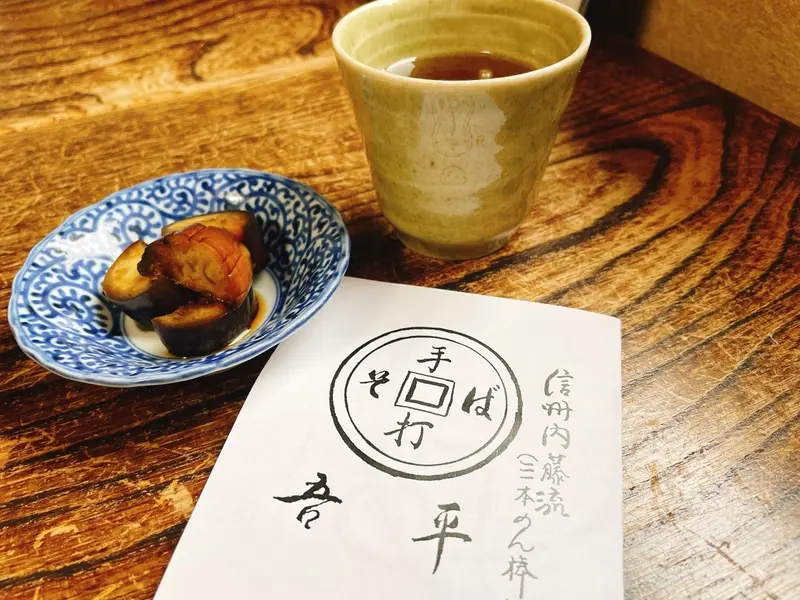 手
打
そ ば
吾 平
信州内藤流
(三本のん棒